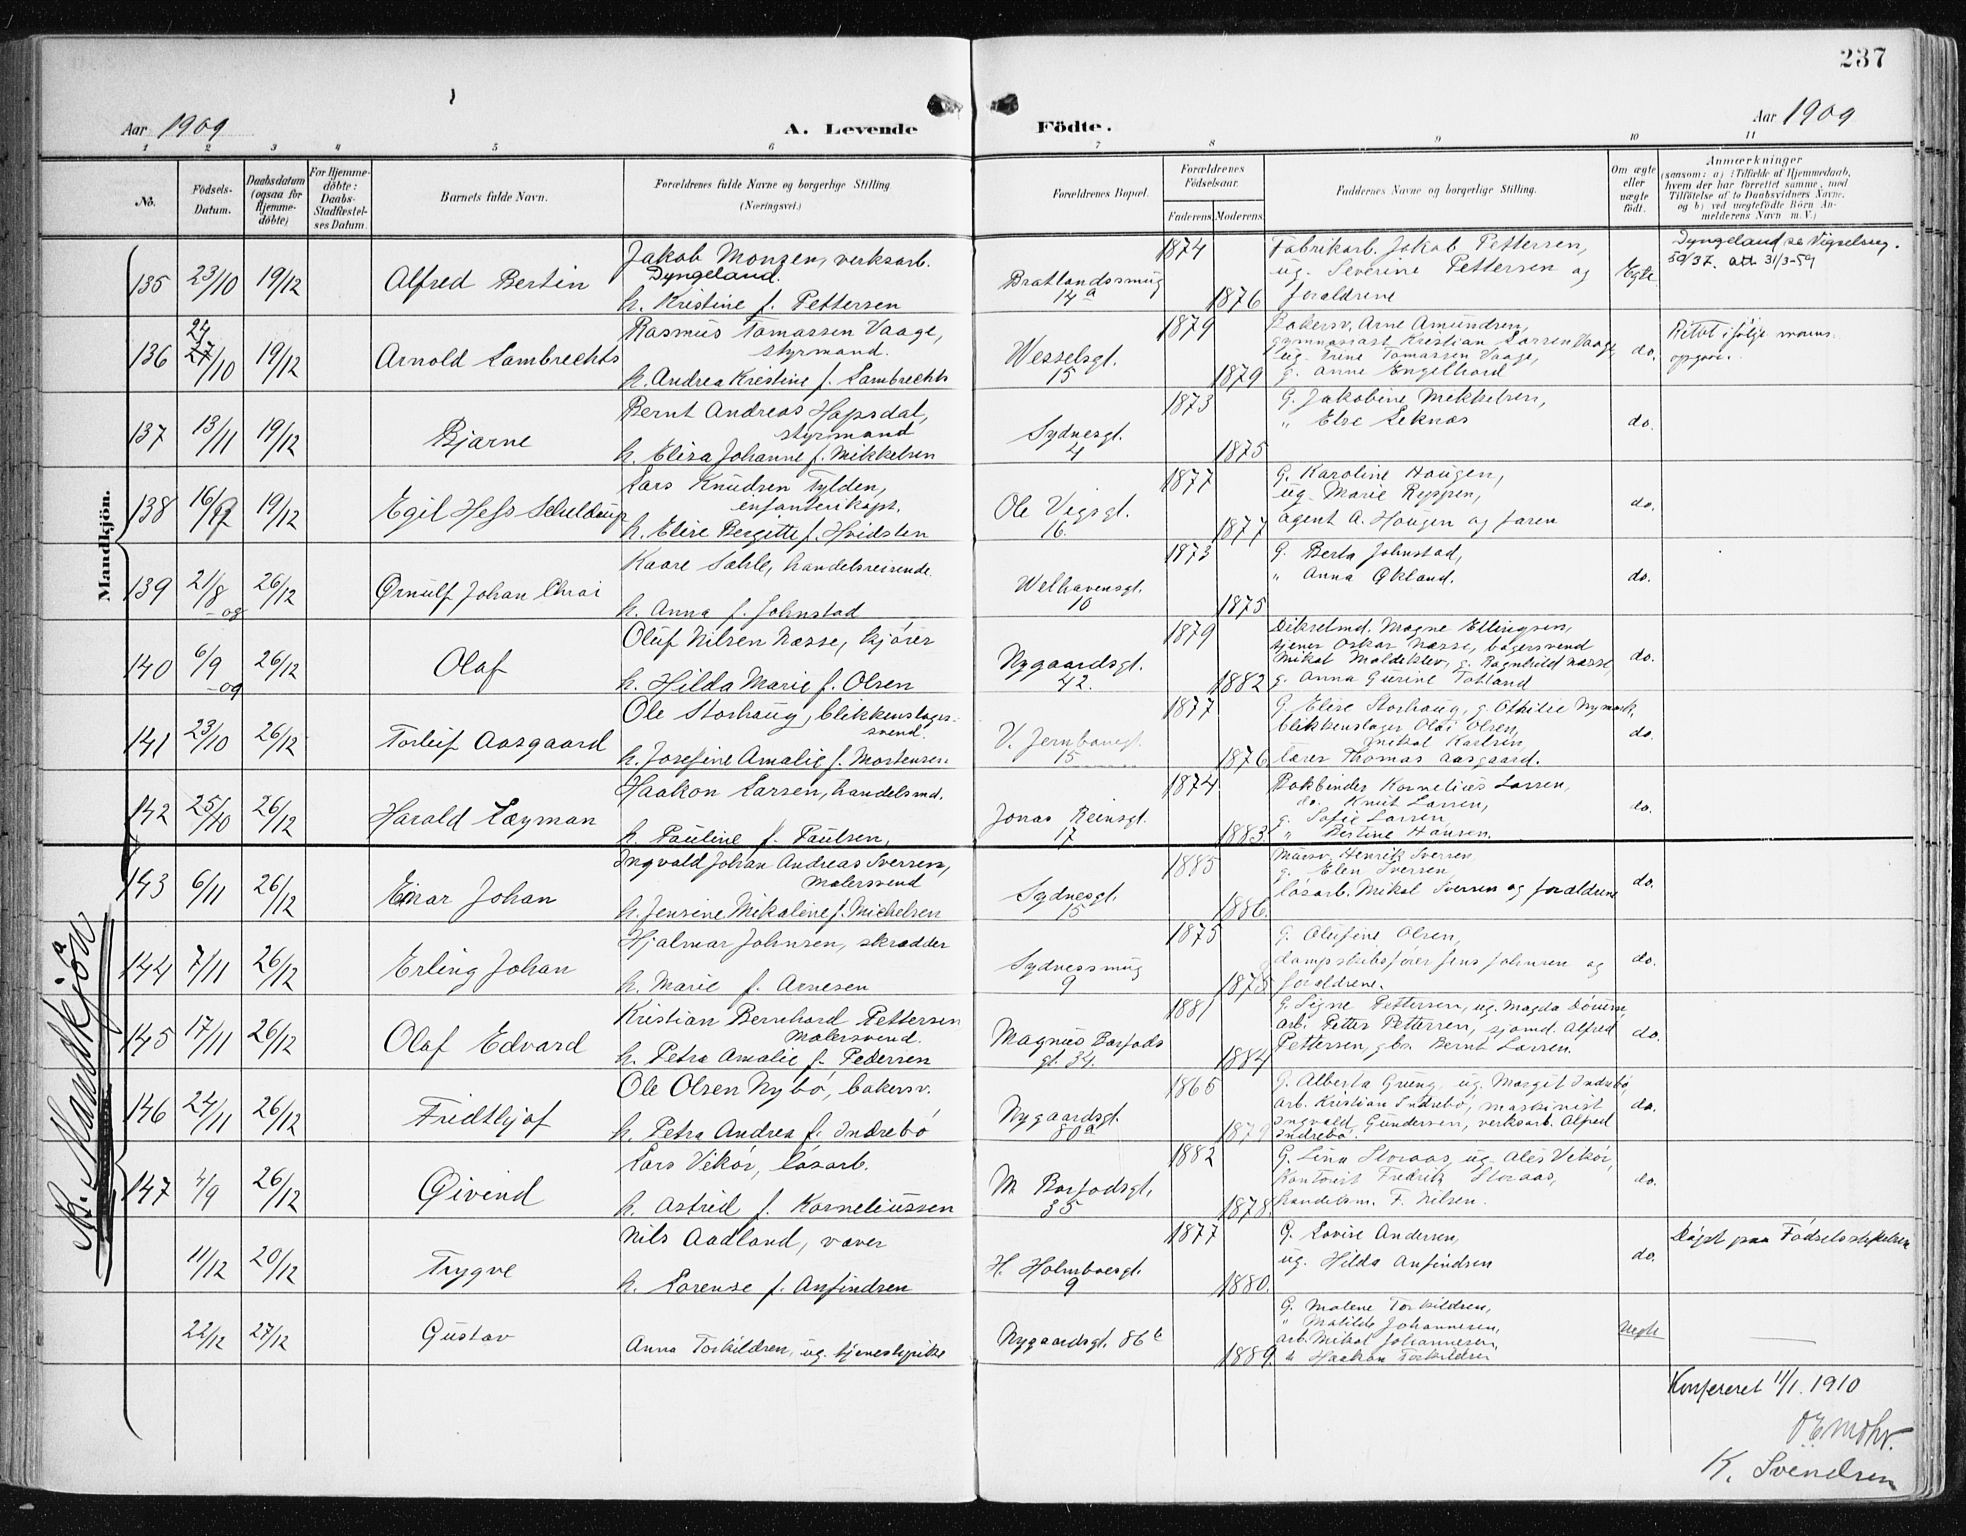 237
Aar 1909
A. Levende Födte.
Aar 1909
1 2 3 4 5 6 7 8 9 10 11
No.
Födsels-
Datum.
Daabsdatum
(ogsaa for
Hjemme-
döbte)
For Hjemme-
döbte:
Daabs-
Stadfæstel-
ses Datum.
Barnets fulde Navn.
Forældrenes fulde Navne og borgerlige Stilling.
(Næringsvei.)
Forældrenes Bopæl.
Forældrenes
Födselsaar.
Faderens Moderens
Faddernes Navne og borgerlige Stilling.
Om ægte
eller
uægte
födt.
Anmærkninger
(saasom: a) i Tilfælde af Hjemmedaab,
hvem der har forrettet samme, med
Tilföielse af to Daabsvidners Navne,
og b) ved uægtefödte Börn An-
melderens Navn m. V.)
Mandkjön.
Mandkjön
135 23/10 19/12 Alfred Bertin
Jakob Monsen, verksarb.
Dyngeland.
h. Kristine f. Pettersen
Bratlandssmug
14a
1874 1876
Fabrikarb. Jakob Pettersen,
ug. Severine Pettersen og
foraldrene
Egte
Dyngeland se Vigselsreg.
50/37. att. 31/3-59
136 24 27/10 19/12 Arnold Lambrechts
Rasmus Tomassen Vaage,
styrmand.
h. Andrea Kristine f. Lambrechts
Wesselsgt.
15
1879 1879
Bakersv. Arne Amundsen,
gymnasiast Kristian Larsen Vaage
ug. Trine Tomassen Vaage,
g. Anne Engelhard
do.
Rettet ifølge mors
opgave.
137 13/11 19/12 Bjarne
Bernt Andreas Hapsdal,
styrmand
h. Elisa Johanne f. Mikkelsen
Sydnesgt.
4
1873 1875
G. Jakobine Mikkelsen,
" Else Leknas
do.
138 19/12 Egil Hess Schuldrup
Lars Knudsen Tylden,
infanterikapt.
h. Elise Bergitte f. Hvidsten
Ole Vigsgt.
16.
1877 1877
G. Karoline Haugen,
ug. Marie Reppen,
agent A. Haugen og faren
do.
139 21/8 26/12 Ørnulf Johan Chrai
-09
Kaare Sahle, handelsreisende.
h. Anna f. Johnstad
Welhavensgt.
10
1873 1875
G. Berta Johnstad,
" Anna Økland.
do.
140 6/9 26/12 Olaf
-09
Oluf Nilsen Næsse, kjører
h. Hilda Marie f. Olsen
Nygaardsgt.
42.
1879 1882
Magne Ellingsen,
tjener Oskar Næsse, bagersvend
Mikal Moldeklev, g. Ragnhild Næsse,
g. Anna Gurine Totland
do.
141 23/10 26/12 Torleif Aasgaard
Ole Storhaug, blikkenslager-
svend.
h. Josefine Amalie f. Mortensen.
V. Jernbanegt.
15
1877 1876
G. Elise Storhaug, g. Othilie Nymark,
blikkenslager Olai Olsen,
Mikal Karlsen,
lærer Thomas Aasgaard.
do.
142 25/10 26/12 Harald Layman
Haakon Larsen, handelsmd.
h. Pauline f. Paulsen,
Jonas Reinsgt.
17
1874 1883
Bokbinder Kornelius Larsen,
do. Knut Larsen,
g. Sofie Larsen,
" Bertine Hansen.
do.
143 6/11 26/12 Einar Johan
Ingvald Johan Andreas Iversen,
Malersvend
h. Jensine Mikaline f. Michelsen
Sydnesgt.
15
1885 1886.
Mursv. Henrik Iversen
g. Elen Iversen,
løsarb. Mikal Iversen og foraldrene
do.
144 7/11 26/12 Erling Johan
Hjalmar Johnsen, skrædder
h. Marie f. Arnesen
Sydnessmug
9
1875 1875
G. Olufine Olsen,
dampskibsfører Jens Johnsen og
foraldrene.
do.
145 17/11 26/12 Olaf Edvard
Kristian Bernhard Pettersen
Malersvend.
h. Petra Amalie f. Pedersen
Magnus Barfods
gt. 34.
1881 1884
G. Signe Pettersen, ug. Magda
arb. Petter Pettersen, sjømd. Alfred
Pettersen, gbr. Bernt Larsen.
do.
146 24/11 26/12 Fridthjof
Ole Olsen Nybø, bakersv.
h. Petra Andrea f. Indrebø
Nygaardsgt.
80a
1865 1879
G. Alberta Grung, ug. Margit Indrebø,
arb. Kristian Indrebø, maskinist
Ingvald Gundersen, verksarb. Alfred
Indrebø.
do.
147 4/9 26/12 Øivind
Lars Vikør, løsarb.
h. Astrid f. Korneliussen
M. Barfodsgt.
35
1882 1878.
G. Lina Storaas, ug. Ales Vikør,
Kontorist Fredrik Storaas,
handelsm. F. Nilsen.
do.
11/12 20/12 Trygve
Nils Aadland, væver
h. Lorense f. Anfindsen
H. Holmboesgt.
9
1877 1880.
G. Lovise Andersen,
ug. Hilda Anfindsen
do.
Døpt paa Fødselsstiftelsen
22/12 27/12 Gustav
Anna Torkildsen, ug. tjenestepike
Nygaardsgt. 86b
1889
G. Malene Torkildsen,
" Matilde Johannesen,
arb. Mikal Johannesen,
" Haakon Torkildsen
Uegte
Konfereret 11/1. 1910
K. Svendsen